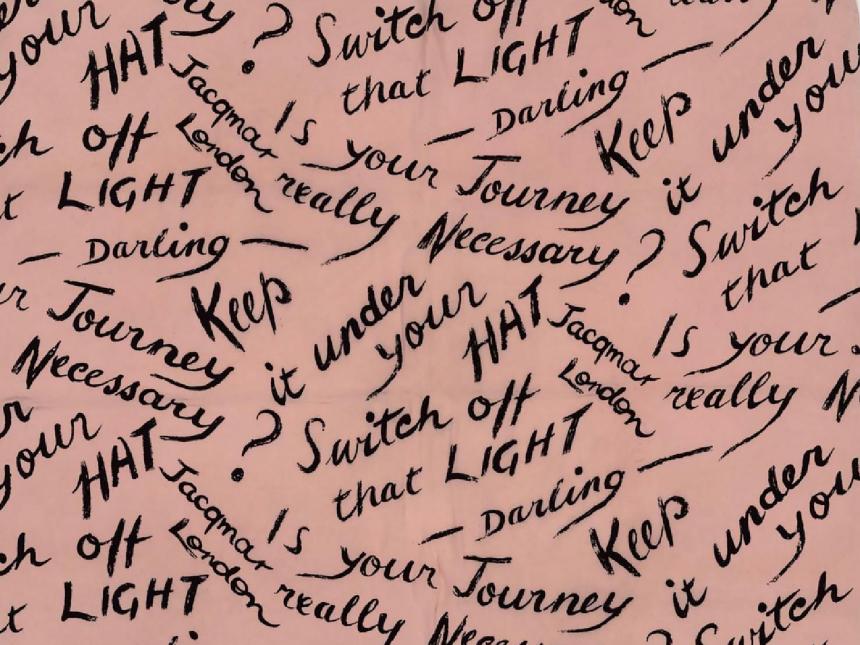 your
HAT
?
Switch off
that LIGHT
— Darling —
Jacqmar
London
Is your Journey
really Necessary?
Keep
it under
your
off
LIGHT
— Darling —
Journey
Necessary?
Keep
it under
your
HAT
Switch
that
Jacqmar
London
Is your
really
Switch off
that LIGHT
— Darling —
your
HAT
Jacqmar
London
Is your Journey
really
Keep
it under
off
LIGHT
Switch